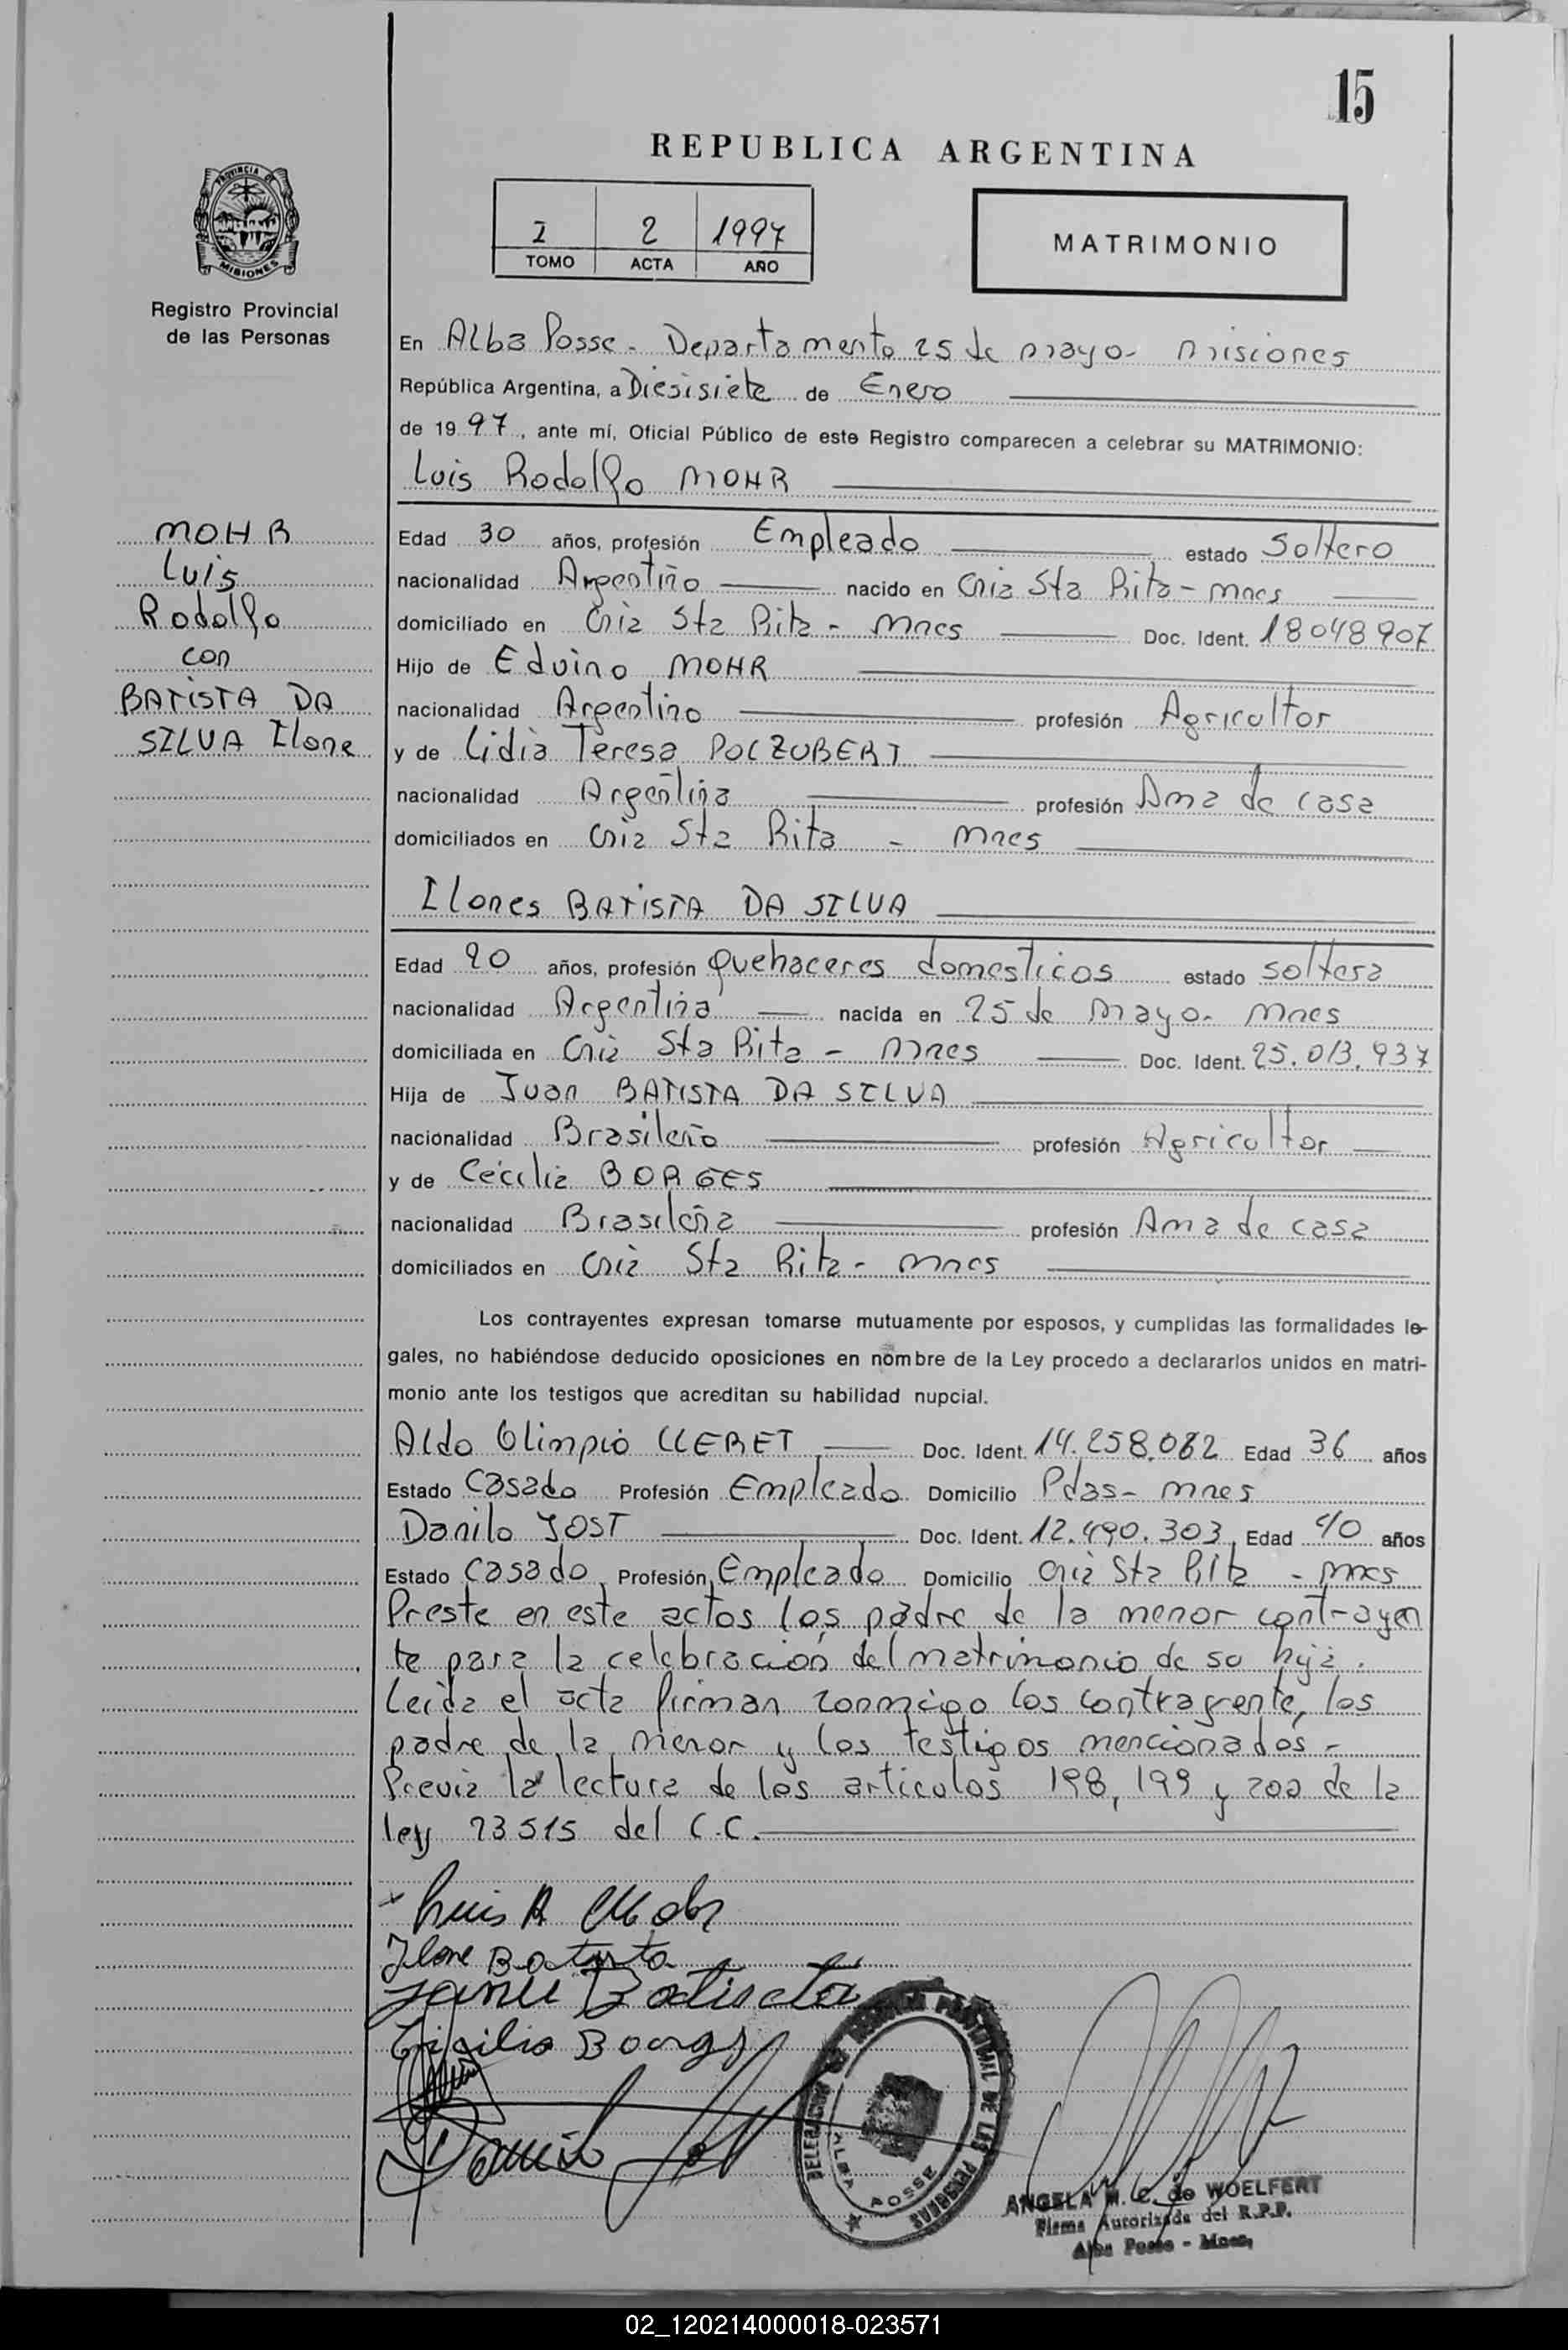 15
REPUBLICA ARGENTINA
I 2 1997
TOMO ACTA AÑO
MATRIMONIO
PROVINCIA DE
MISIONES
Registro Provincial
de las Personas
En Alba Posse - Departamento 25 de mayo - misiones
República Argentina, a Diesisiete de Enero
de 1997, ante mí, Oficial Público de este Registro comparecen a celebrar su MATRIMONIO:
Luis Rodolfo MOHR
MOHR
Luis
Rodolfo
con
BATISTA DA
SILVA Ilone
Edad 30 años, profesión Empleado estado Soltero
nacionalidad Argentino nacido en Cnia Sta Rita - Mnes
domiciliado en Cnia Sta Rita - Mnes Doc. Ident. 18048907
Hijo de Eduino MOHR
nacionalidad Argentino profesión Agricultor
y de Lidia Teresa POCZUBERT
nacionalidad Argentina profesión Ama de casa
domiciliados en Cnia Sta Rita - Mnes
Ilones BATISTA DA SILVA
Edad 20 años, profesión Quehaceres domesticos estado soltera
nacionalidad Argentina nacida en 25 de mayo - Mnes
domiciliada en Cnia Sta Rita - Mnes Doc. Ident. 25.013.937
Hija de Juan BATISTA DA SILVA
nacionalidad Brasileño profesión Agricultor
y de Cecilia BORGES
nacionalidad Brasileña profesión Ama de casa
domiciliados en Cnia Sta Rita - Mnes
Los contrayentes expresan tomarse mutuamente por esposos, y cumplidas las formalidades le-
gales, no habiéndose deducido oposiciones en nombre de la Ley procedo a declararlos unidos en matri-
monio ante los testigos que acreditan su habilidad nupcial.
Aldo Olimpio LLERET Doc. Ident. 14.258.082 Edad 36 años
Estado Casado Profesión Empleado Domicilio Pdas - Mnes
Danilo JOST Doc. Ident. 12.490.303 Edad 40 años
Estado Casado Profesión Empleado Domicilio Cnia Sta Rita - Mnes
Preste en este actos los padre de la menor contrayen
te para la celebración del matrimonio de su hija.
Leida el acta firman conmigo los contrayente, los
padre de la menor y los testigos mencionados -
Previa la lectura de los articulos 198, 199 y 200 de la
ley 23515 del C.C.
Luis R Mohr
Ilone Batista
Batiscta
Cicilia Boorgs
Danilo Jost
DELEGACION DE REGISTRO PROVINCIAL DE LAS PERSONAS
ALBA POSSE
ANGELA M. C. de WOELFERT
Firma Autorizada del R.P.P.
Alba Posse - Mnes.
02_120214000018-023571